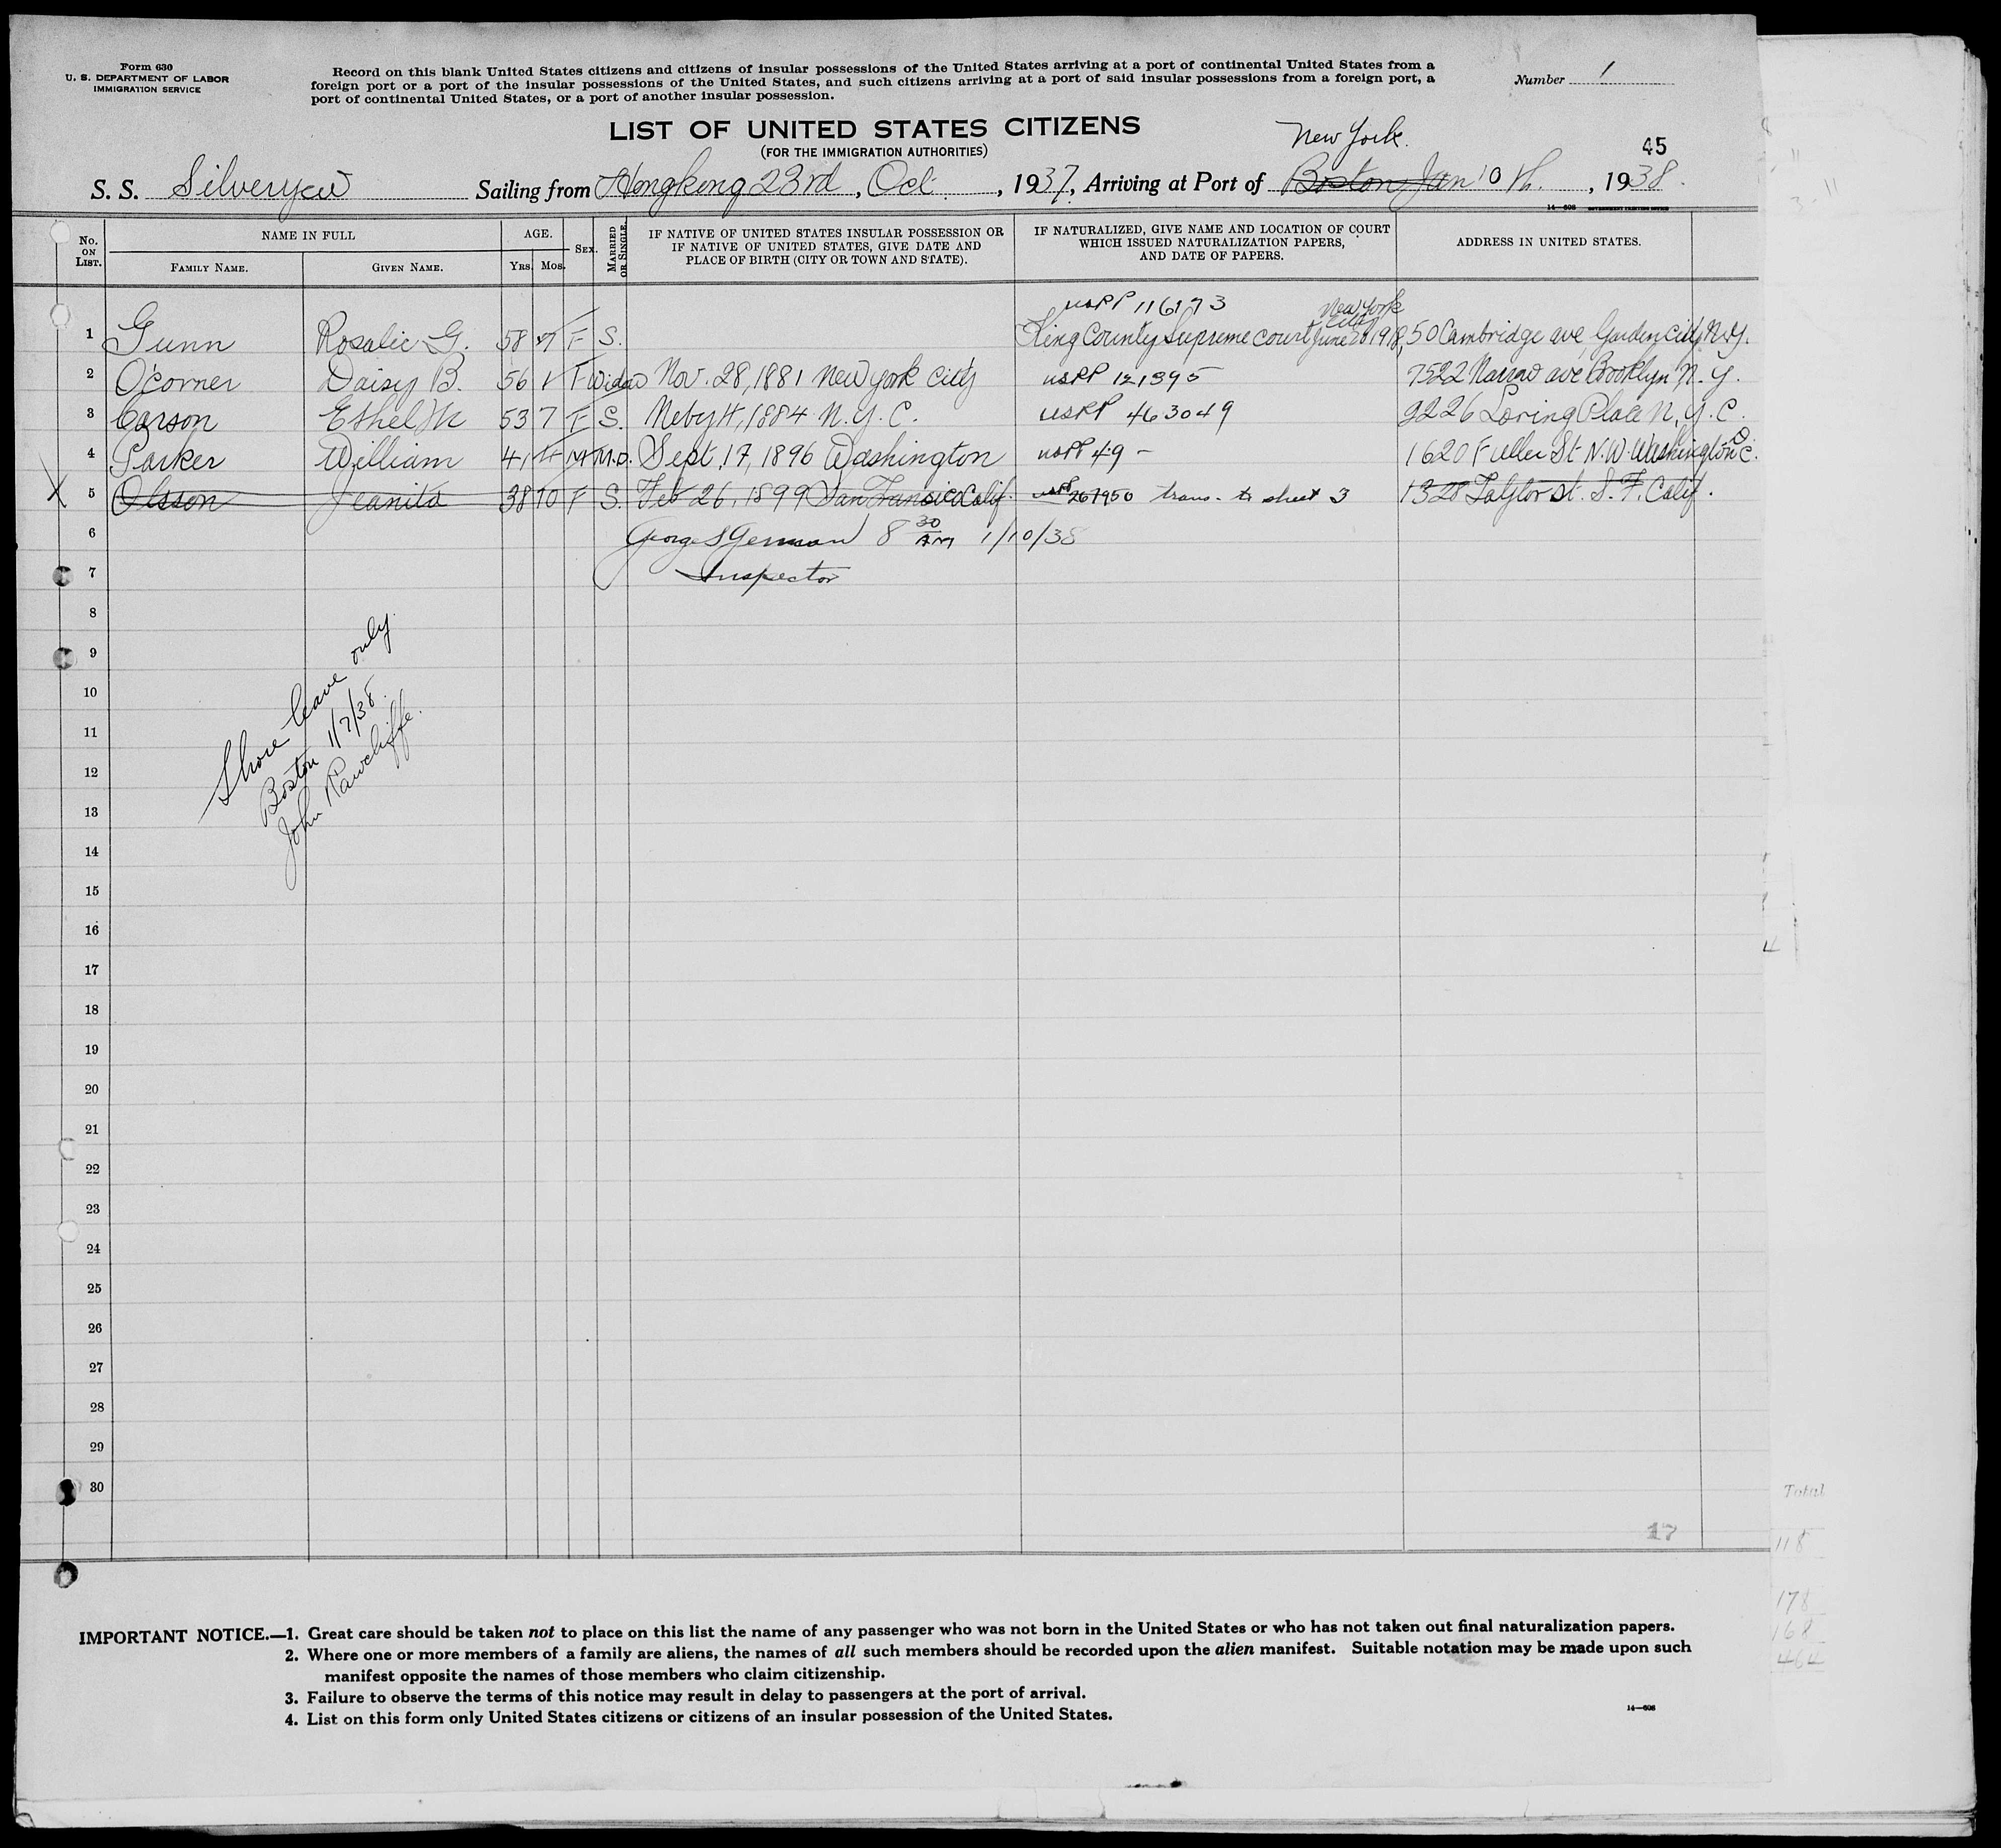 Form 630
U. S. DEPARTMENT OF LABOR
IMMIGRATION SERVICE
Record on this blank United States citizens and citizens of insular possessions of the United States arriving at a port of continental United States from a
foreign port or a port of the insular possessions of the United States, and such citizens arriving at a port of said insular possessions from a foreign port, a
port of continental United States, or a port of another insular possession.
Number 1
LIST OF UNITED STATES CITIZENS
(FOR THE IMMIGRATION AUTHORITIES)
New York.
45
S. S. Silveryew Sailing from Hongkong 23rd, Oct, 1937, Arriving at Port of Boston Jan 10 th., 1938.
14—608 GOVERNMENT PRINTING OFFICE
No. ON LIST. NAME IN FULL FAMILY NAME. GIVEN NAME. AGE. YRS. MOS. SEX. MARRIED OR SINGLE. IF NATIVE OF UNITED STATES INSULAR POSSESSION OR IF NATIVE OF UNITED STATES, GIVE DATE AND PLACE OF BIRTH (CITY OR TOWN AND STATE). IF NATURALIZED, GIVE NAME AND LOCATION OF COURT WHICH ISSUED NATURALIZATION PAPERS, AND DATE OF PAPERS. ADDRESS IN UNITED STATES.
USPP 116173 New York City
1 Gunn Rosalie G. 58 7 F S. King County Supreme court June 20 1918, 50 Cambridge ave, Garden City N.Y.
2 O'corner Daisy B. 56 1 F Widow Nov. 28, 1881 New York City USPP 121395 7522 Narrow ave Brooklyn N. Y.
3 Carson Ethel M 53 7 F S. 4, 1884 N. Y. C. USPP 463049 2226 Loring Place N. Y. C.
4 Parker William 41 4 M M.D. Sept. 17, 1896 Washington USPP 49 - 1620 Fuller St N.W. Washington D.C.
5 Olsson Jeanita 38 10 F S. Feb 26, 1899 San Fransico Calif. USPP 267950 trans. to sheet 3 1328 Taylor st. S. F. Calif.
6 George S German 8 30 AM 1/10/38
7 Inspector
8
9
10
11
12
13
14
15
16
17
18
19
20
21
22
23
24
25
26
27
28
29
30
Shore leave only
Boston 1/7/38.
John Rawcliffe.
17
Total
118
178
168
464
IMPORTANT NOTICE.—1. Great care should be taken not to place on this list the name of any passenger who was not born in the United States or who has not taken out final naturalization papers.
2. Where one or more members of a family are aliens, the names of all such members should be recorded upon the alien manifest. Suitable notation may be made upon such
manifest opposite the names of those members who claim citizenship.
3. Failure to observe the terms of this notice may result in delay to passengers at the port of arrival.
4. List on this form only United States citizens or citizens of an insular possession of the United States.
14—608